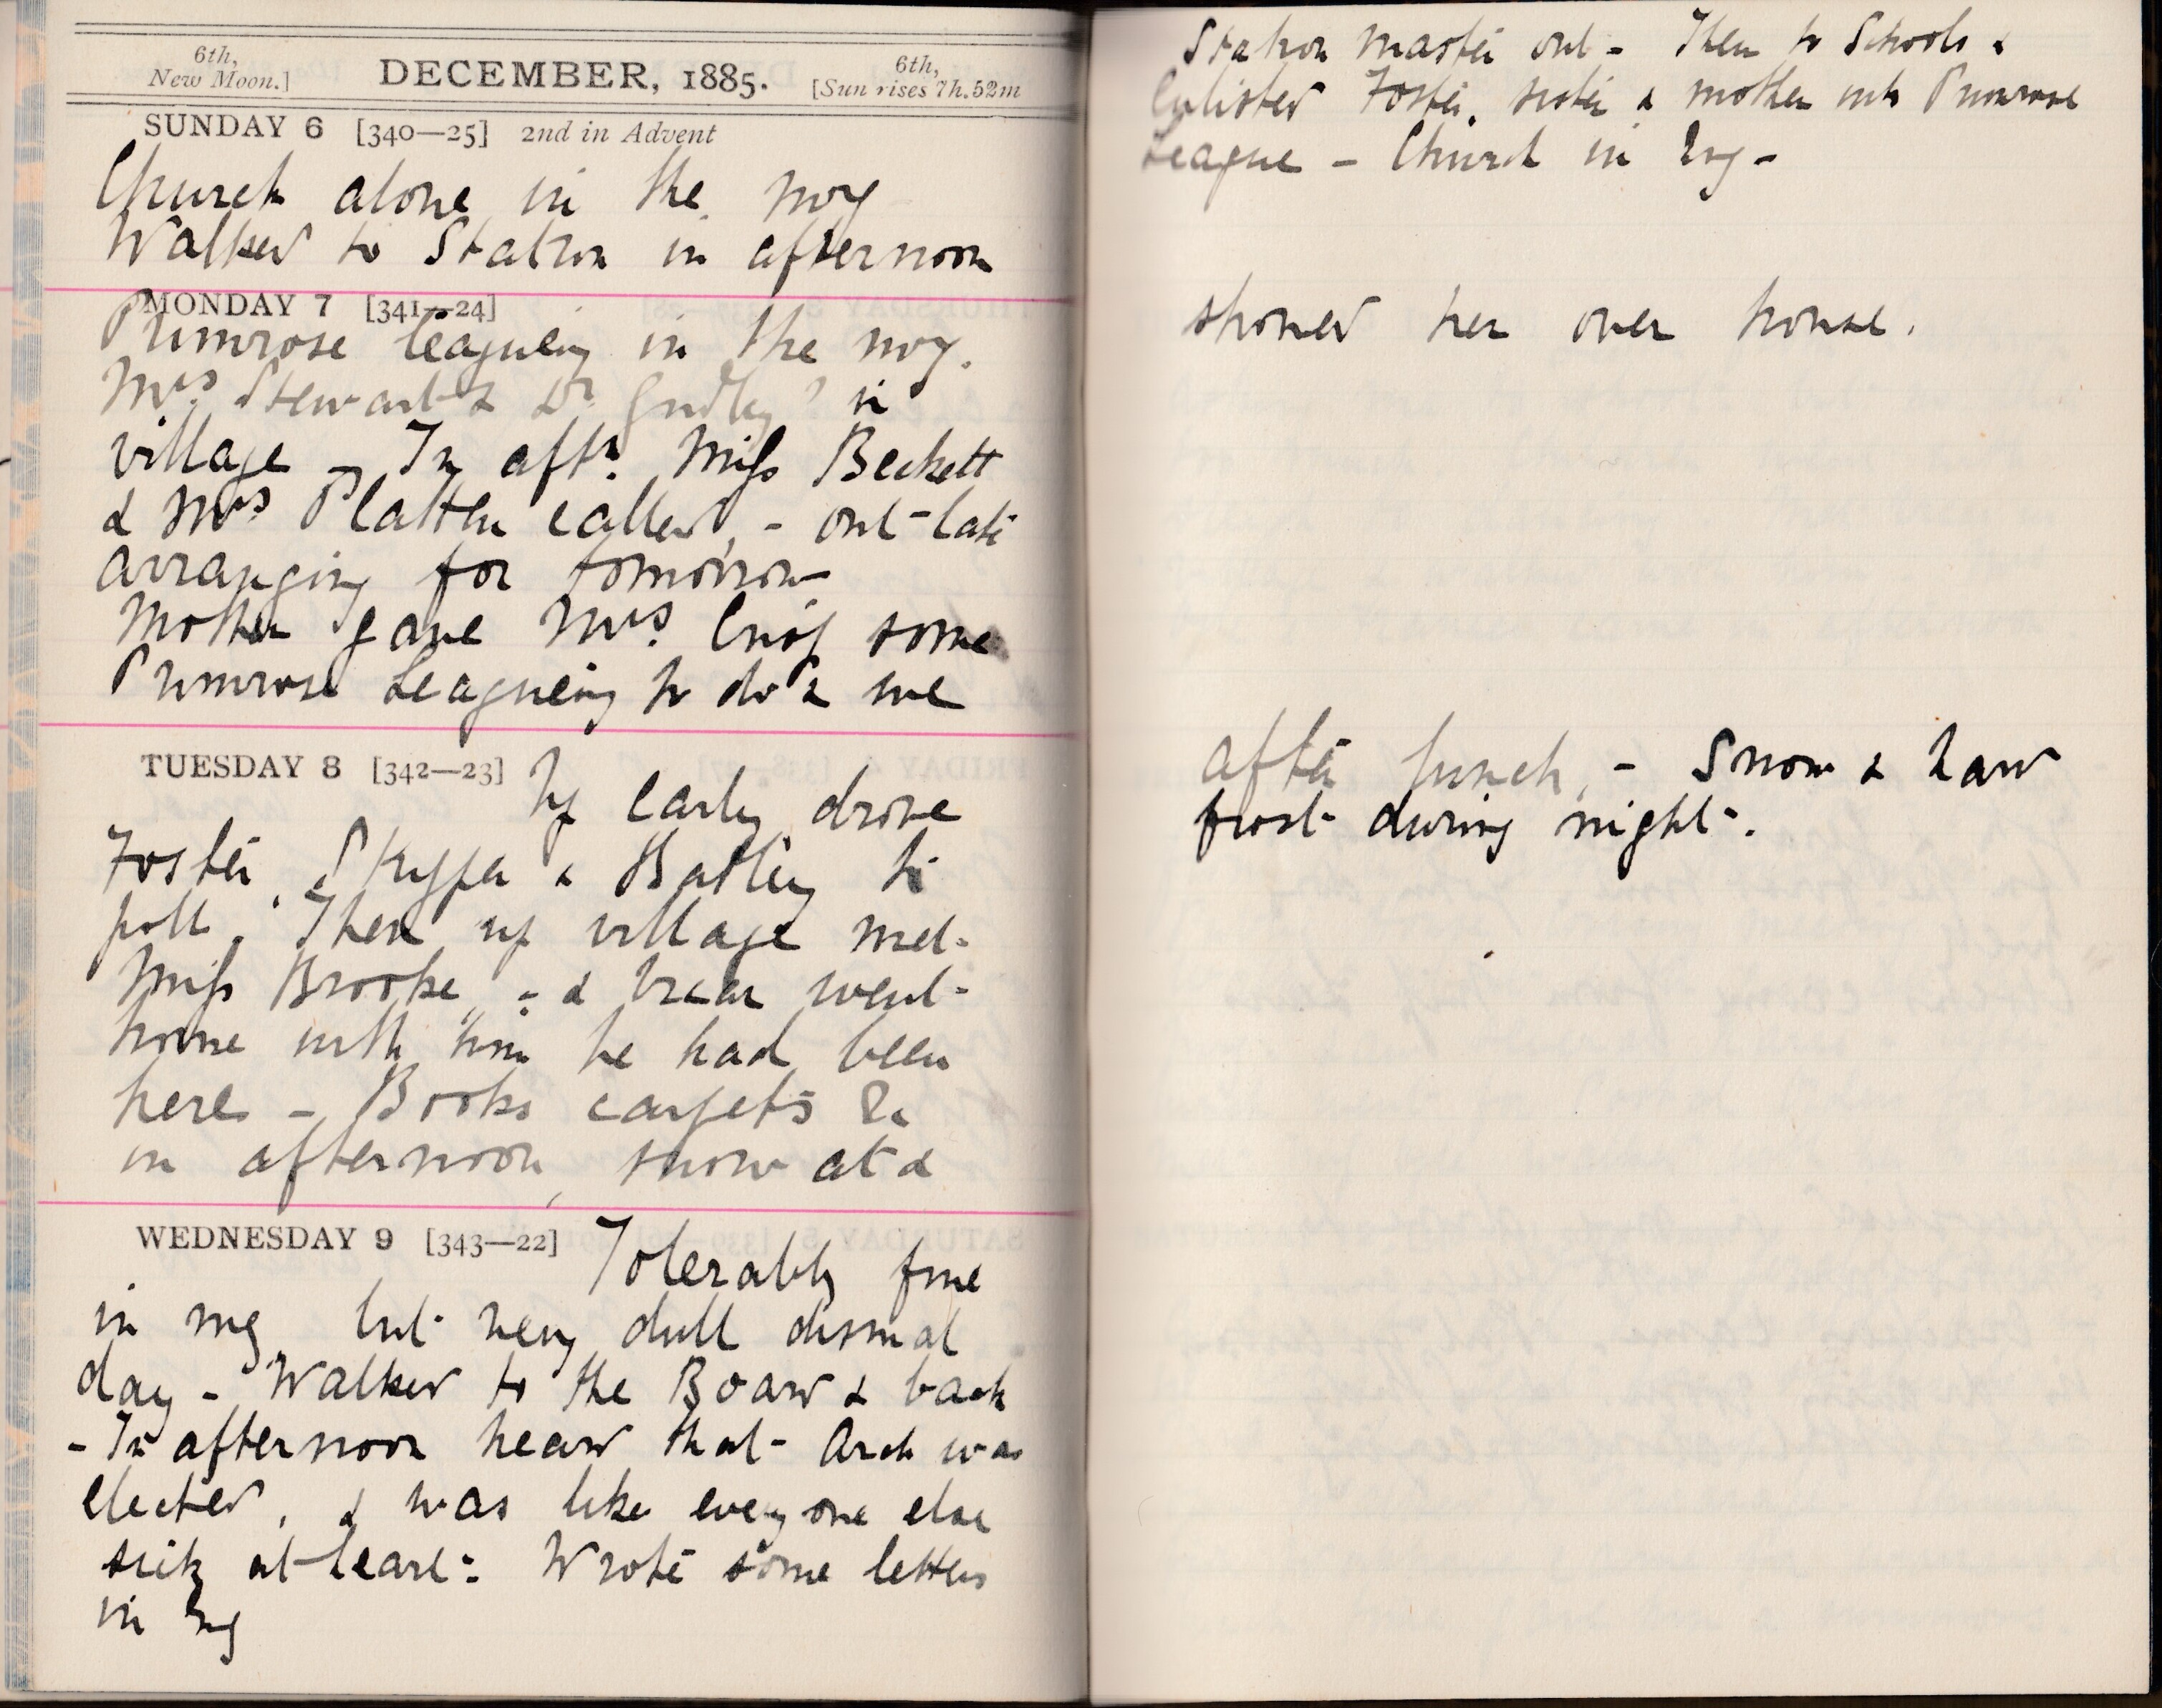 6th,
New Moon.]
DECEMBER, 1885.
6th,
[Sun rises 7h.52m
SUNDAY 6 [340—25] 2nd in Advent
Church alone in the mg
Walked to Station in afternoon
MONDAY 7 [341—24]
Primrose leagueing in the mg.
Mrs Stewart & Dr in
village – In aftn. Miss Beckett
& Mrs Platten called, – out late
arranging for tomorrow
Mother gave Mrs. Crisp some
Primrose Leagueing to do & we
TUESDAY 8 [342—23] Up early drove
Foster, & Batley to
poll. Then up village met
Miss Brooke, – & went
home with him he had been
here – Books carpets &c
in afternoon, snow at &
WEDNESDAY 9 [343—22] Tolerably fine
in mg but very dull dismal
day – Walked to the Board & back
– In afternoon heard that Arch was
elected, & was like everyone else
sick at heart – Wrote some letters
in Evg
Station Master out – Then to Schools &
Enlisted Foster, sister & mother into Primrose
League – Church in Evg –
showed her over house.
after lunch, – Snow & hard
frost during night.